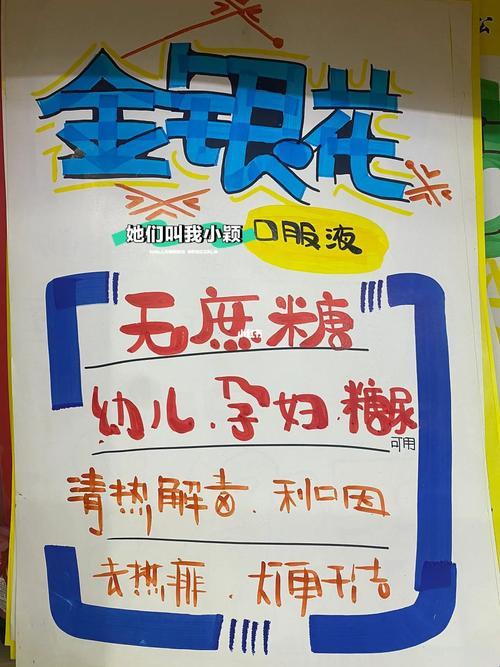 金银花
她们叫我小颖
口服液
无蔗糖
小红书
幼儿.孕妇.糖尿
可用
清热解毒.利口因
去热痱.大便干结